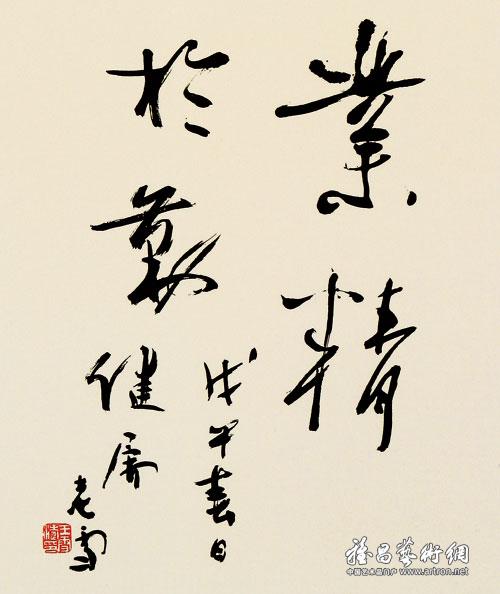 業精
於勤
戊午春日
健
老雪
雅昌藝術網
中国艺术品门户 www.artron.net